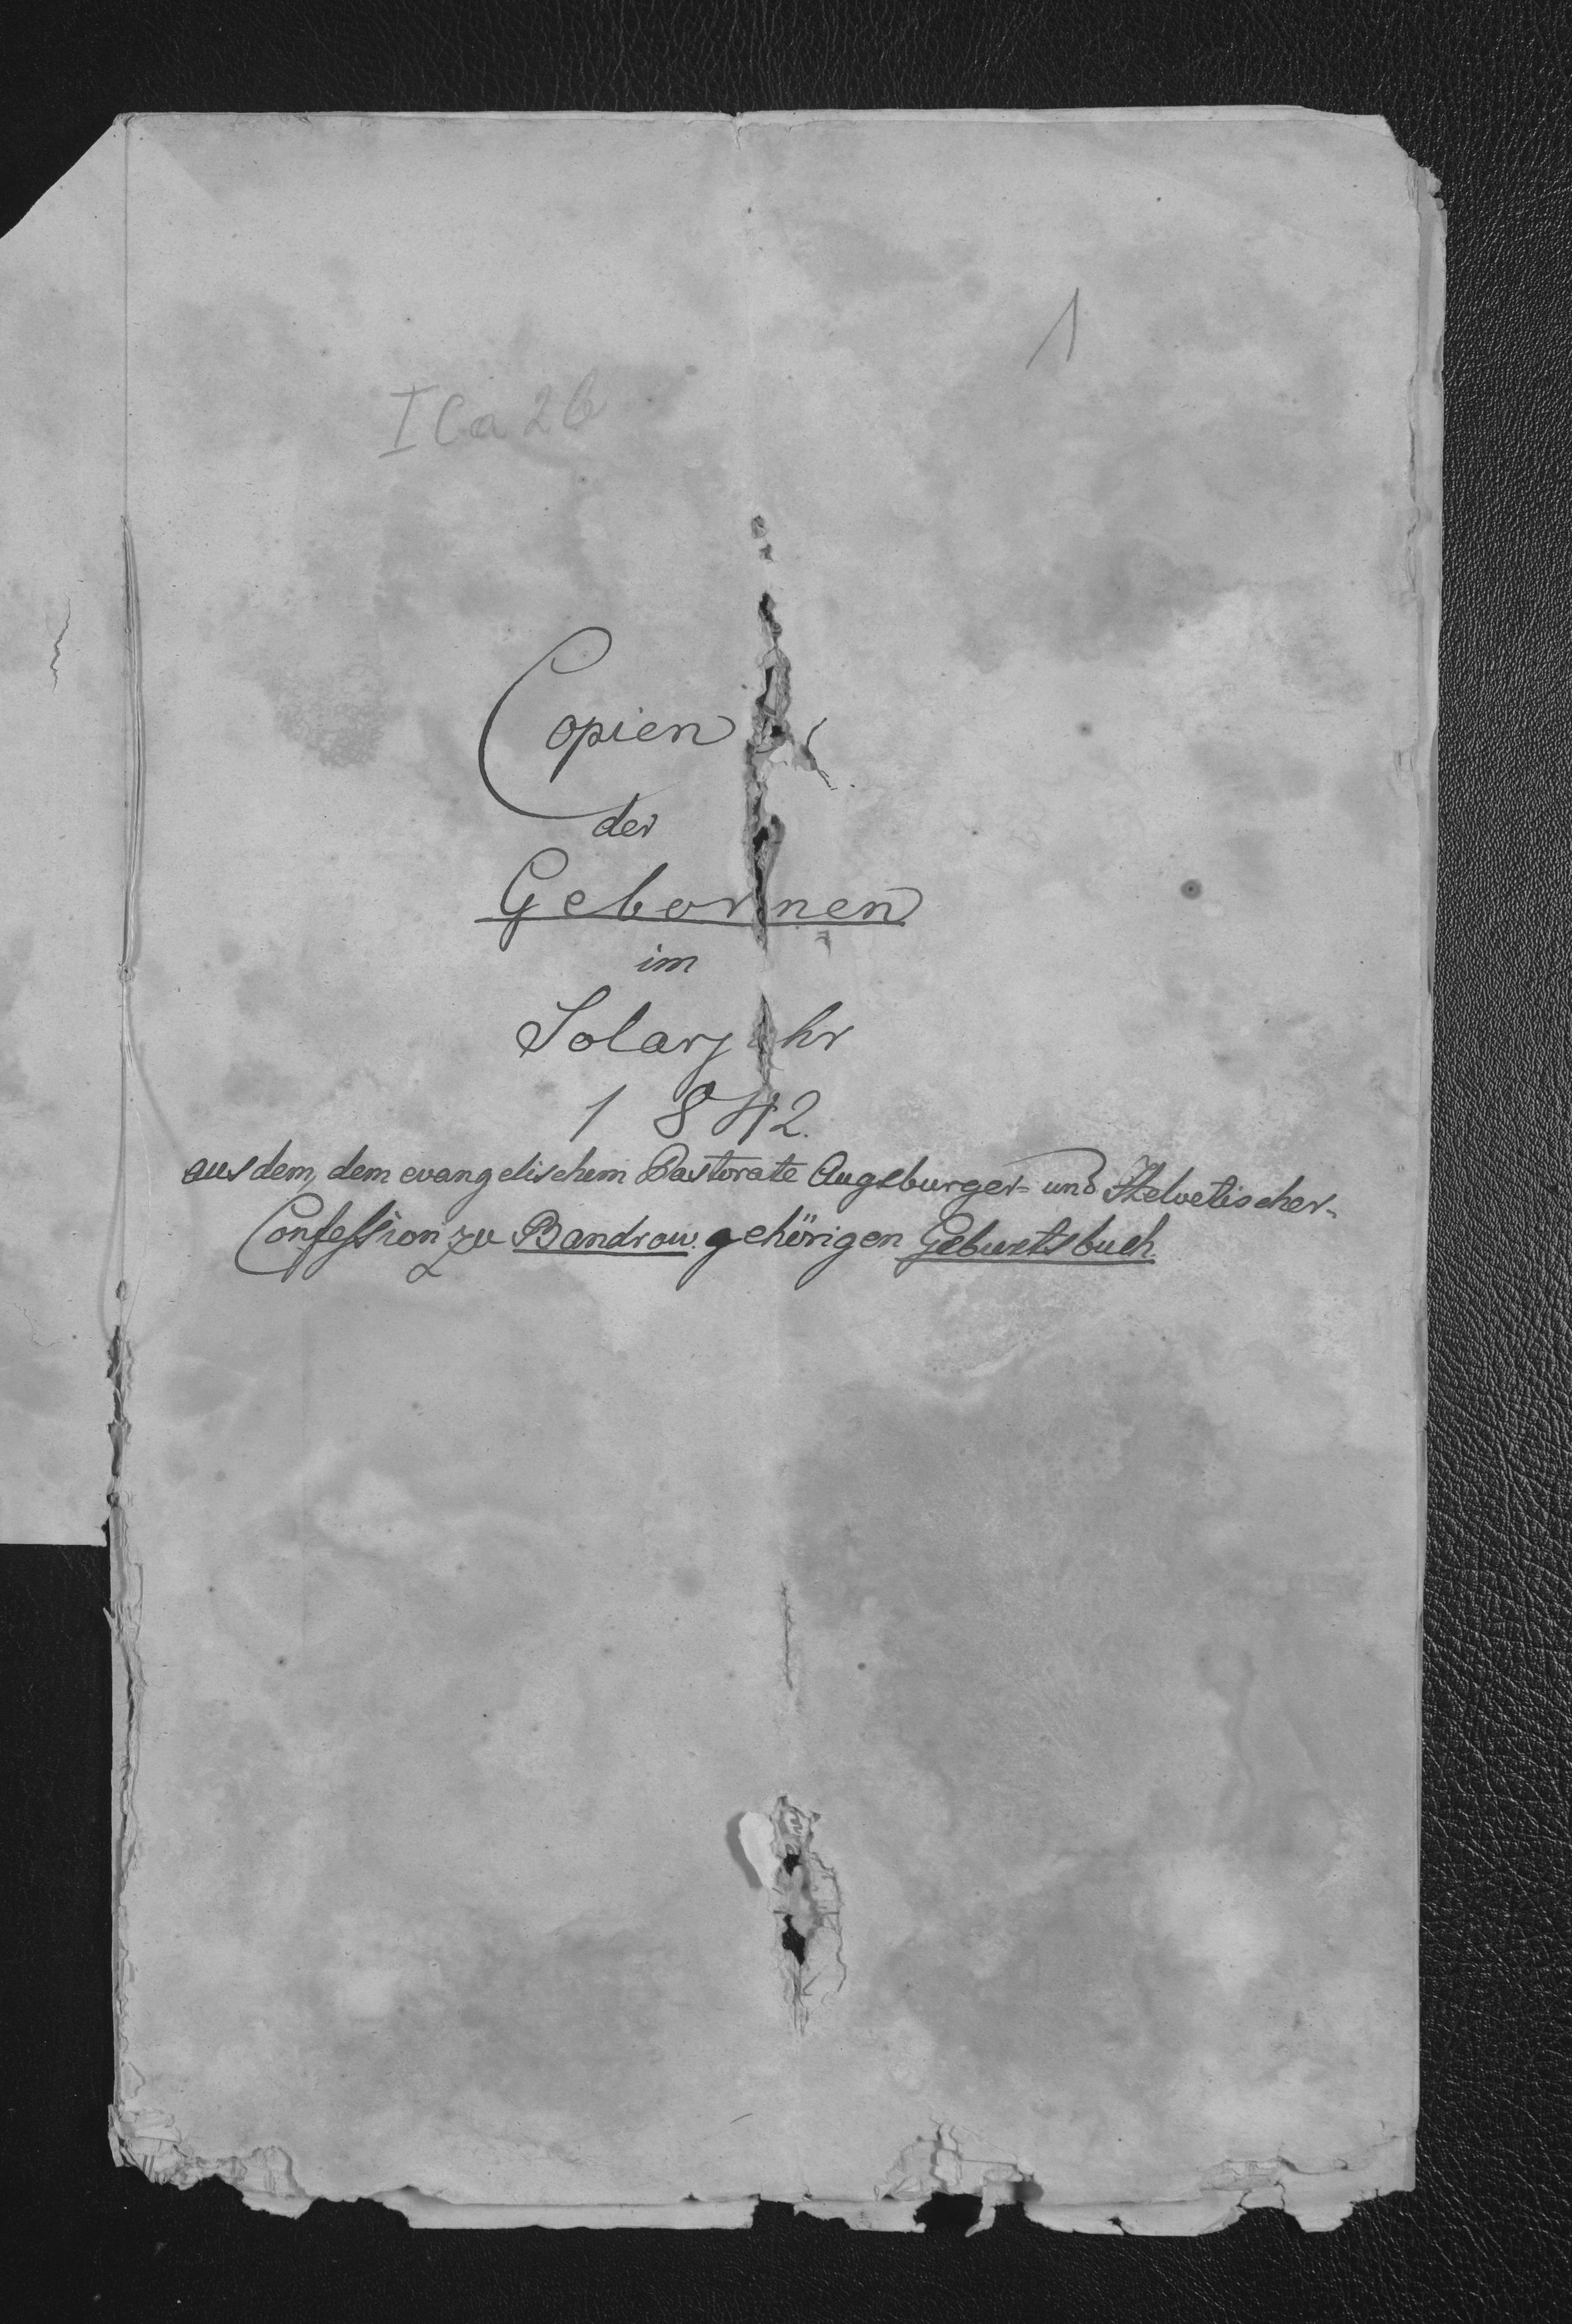 1
I Ca 2b
Copien
der
Gebornen
im
Solarjahr
1842.
aus dem, dem evangelischem Pastorate Augsburger- und Helvetischer-
Confession zu Bandrow gehörigen Geburtsbuch.